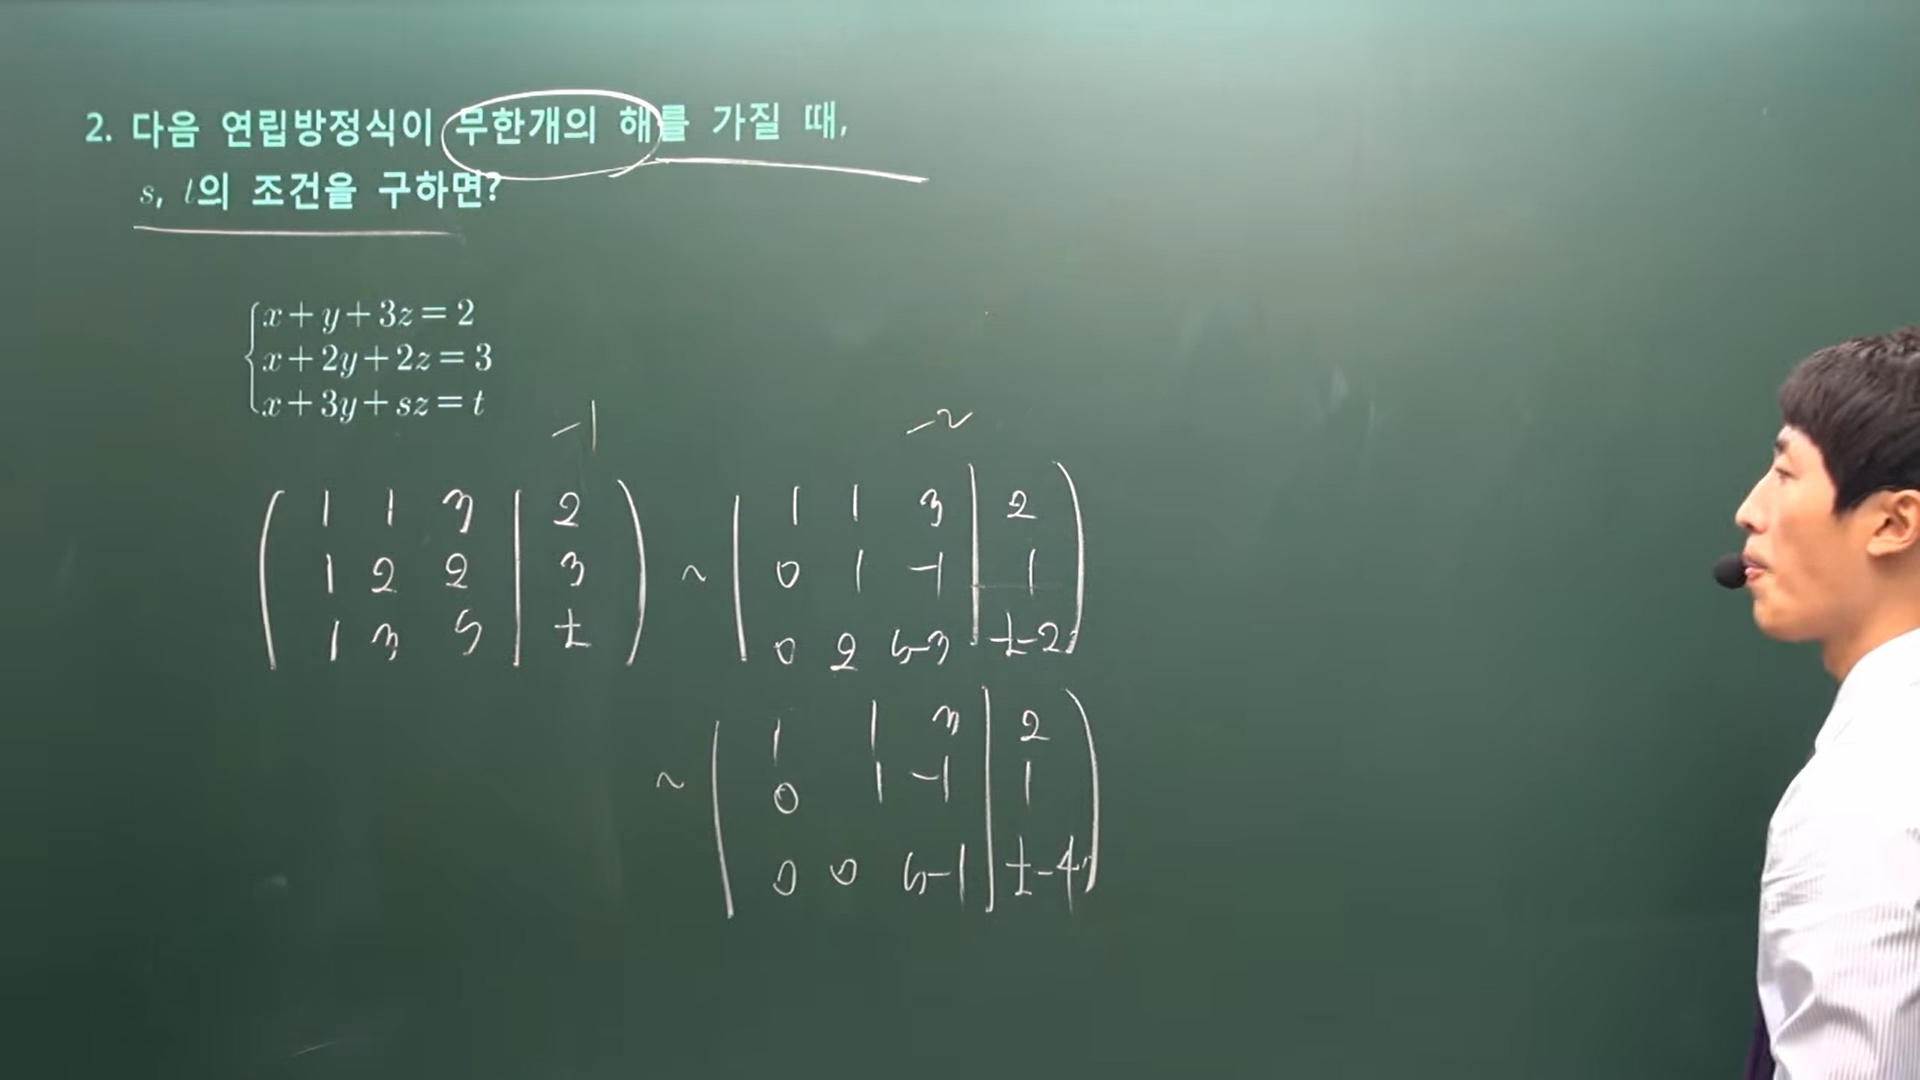 2. 다음 연립방정식이 무한개의 해를 가질 때,
s, t의 조건을 구하면?
x + y + 3z = 2
x + 2y + 2z = 3
x + 3y + sz = t
-1
-2
( 1 1 3 | 2 ) ~ ( 1 1 3 | 2 )
1 2 2 | 3 0 1 -1 | 1
1 3 s | t 0 2 s-3 | t-2
~ ( 1 1 3 | 2 )
0 1 -1 | 1
0 0 s-1 | t-4